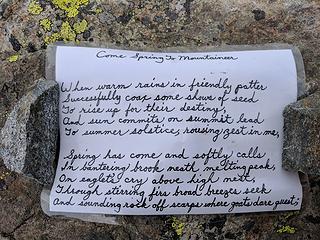 Come Spring To Mountaineer
When warm rains in friendly patter
Successfully coax some shows of seed
To rise up for their destiny,
And sun commits on summit lead
To summer solstice, rousing zest in me,
Spring has come and softly calls
In bantering brook neath melting peak,
On eaglet's cry above high mist,
Through stirring firs broad breezes seek
And sounding rock off scarps where goats dare quest;